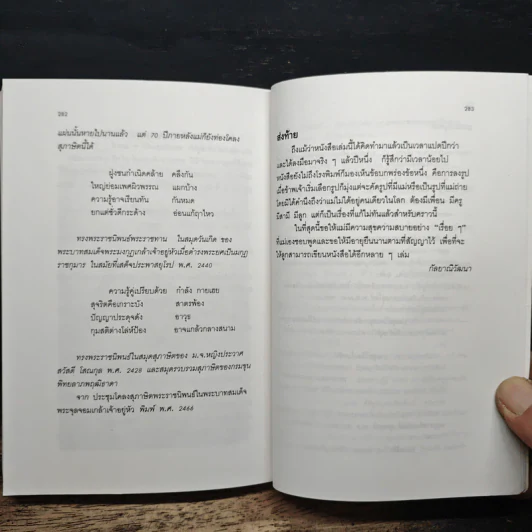 262
แผ่นนั้นหายไปนานแล้ว แต่ 70 ปีภายหลังแม่ก็ยังท่องโคลง
สุภาษิตนี้ได้
ฝูงชนกำเนิดคล้าย คลึงกัน
ใหญ่ย่อมเพศผิวพรรณ แผกบ้าง
ความรู้อาจเรียนทัน กันหมด
ยกแต่ชั่วดีกระด้าง อ่อนแก้ฤาไหว
ทรงพระราชนิพนธ์พระราชทาน ในสมุดวันเกิด ของ
พระบาทสมเด็จพระมงกุฎเกล้าเจ้าอยู่หัวเมื่อดำรงพระยศเป็นมกุฎ
ราชกุมาร ในสมัยที่เสด็จประพาสยุโรป พ.ศ. 2440
ความรู้คู่เปรียบด้วย กำลัง กายเฮย
สุจริตคือเกราะบัง ศาสตร์พ้อง
ปัญญาประดุจดัง อาวุธ
กุมสติต่างโล่ห์ป้อง อาจแกล้วกลางสนาม
ทรงพระราชนิพนธ์ในสมุดสุภาษิตของ ม.จ.หญิงประวาศ
สวัสดี โสณกุล พ.ศ. 2428 และสมุดรวบรวมสุภาษิตของกรมขุน
พิทยลาภพฤฒิธาดา
จาก ประชุมโคลงสุภาษิตพระราชนิพนธ์ในพระบาทสมเด็จ
พระจุลจอมเกล้าเจ้าอยู่หัว พิมพ์ พ.ศ. 2466
263
ส่งท้าย
ถึงแม้ว่าหนังสือเล่มนี้ได้คิดทำมาแล้วเป็นเวลาแปดปีกว่า
และได้ลงมือมาจริง ๆ แล้วปีหนึ่ง ก็รู้สึกว่ามีเวลาน้อยไป
หนังสือยังไม่ถึงโรงพิมพ์ก็มองเห็นข้อบกพร่องข้อหนึ่ง คือการลงรูป
เมื่อข้าพเจ้าเริ่มเลือกรูปก็มุ่งแต่จะคัดรูปที่มีแม่หรือเป็นรูปที่แม่ถ่าย
โดยมิได้คำนึงถึงว่าแม่ไม่ได้อยู่คนเดียวในโลก ต้องมีเพื่อน มีครู
มีสามี มีลูก แต่ก็เป็นเรื่องที่แก้ไม่ทันแล้วสำหรับคราวนี้
ในที่สุดนี้ขอให้แม่มีความสุขความสบายอย่าง "เรื่อย ๆ"
ที่แม่เองชอบพูดและขอให้มีอายุยืนนานตามที่สัญญาไว้ เพื่อที่จะ
ให้ลูกสามารถเขียนหนังสือได้อีกหลาย ๆ เล่ม
กัลยาณิวัฒนา